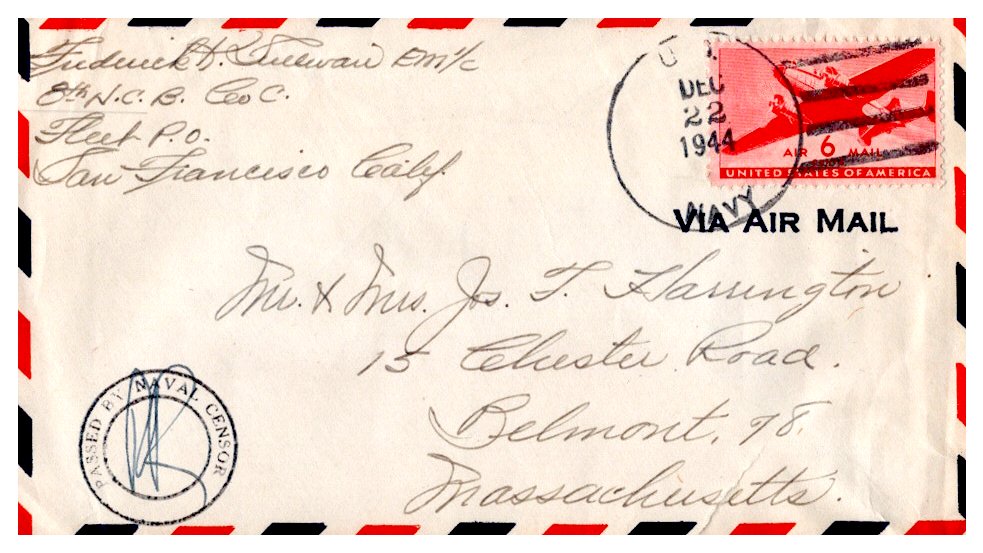 Frederick H. Sullivan EM 1/c
8th N.C.B. Co C.
Fleet P.O.
San Francisco Calif.
DEC
22
1944
NAVY
AIR 6 MAIL
UNITED STATES OF AMERICA
VIA AIR MAIL
Mr. & Mrs. Jos. F. Harrington
15 Chester Road.
Belmont, 78.
Massachusetts.
PASSED BY NAVAL CENSOR